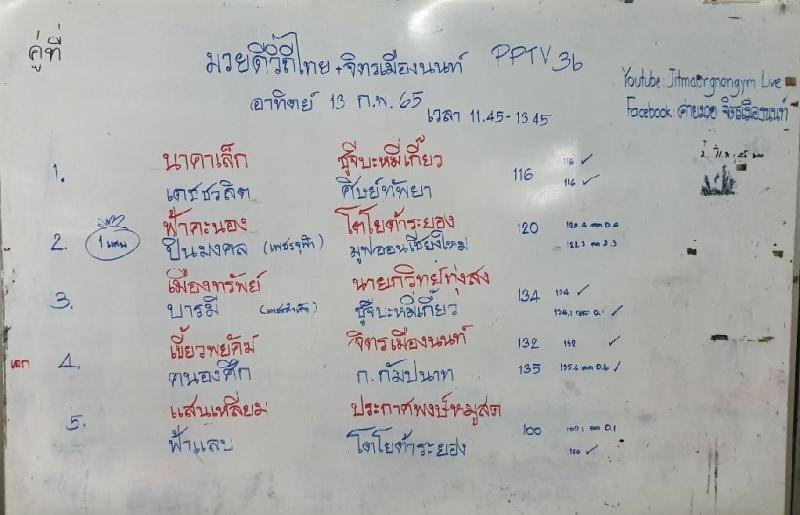 คู่ที่
มวยดีวิถีไทย + จิตรเมืองนนท์ PPTV 36
อาทิตย์ 13 ก.พ. 65
เวลา 11.45 - 13.45
Youtube: Jitmuangnongym Live
Facebook: ค่ายมวย จิตรเมืองนนท์
1. นาคาเล็ก ชูจีบะหมี่เกี๊ยว 116 116 ✓
เดชชวลิต ศิษย์ทัพยา 116 ✓
2. 1 แสน ฟ้าคะนอง โตโยต้าระยอง 120
ปืนมงคล มูฟออนเชียงใหม่
3. เมืองทรัพย์ นายกวิทย์ทุ่งสง 134 134 ✓
บารมี ชูจีบะหมี่เกี๊ยว
4. เขี้ยวพยัคฆ์ จิตรเมืองนนท์ 132 132 ✓
คนองศึก ก.กัมปนาท 135
5. แสนเหลี่ยม ประกาศพงษ์หมูสด 100
ฟ้าแลบ โตโยต้าระยอง 100 ✓